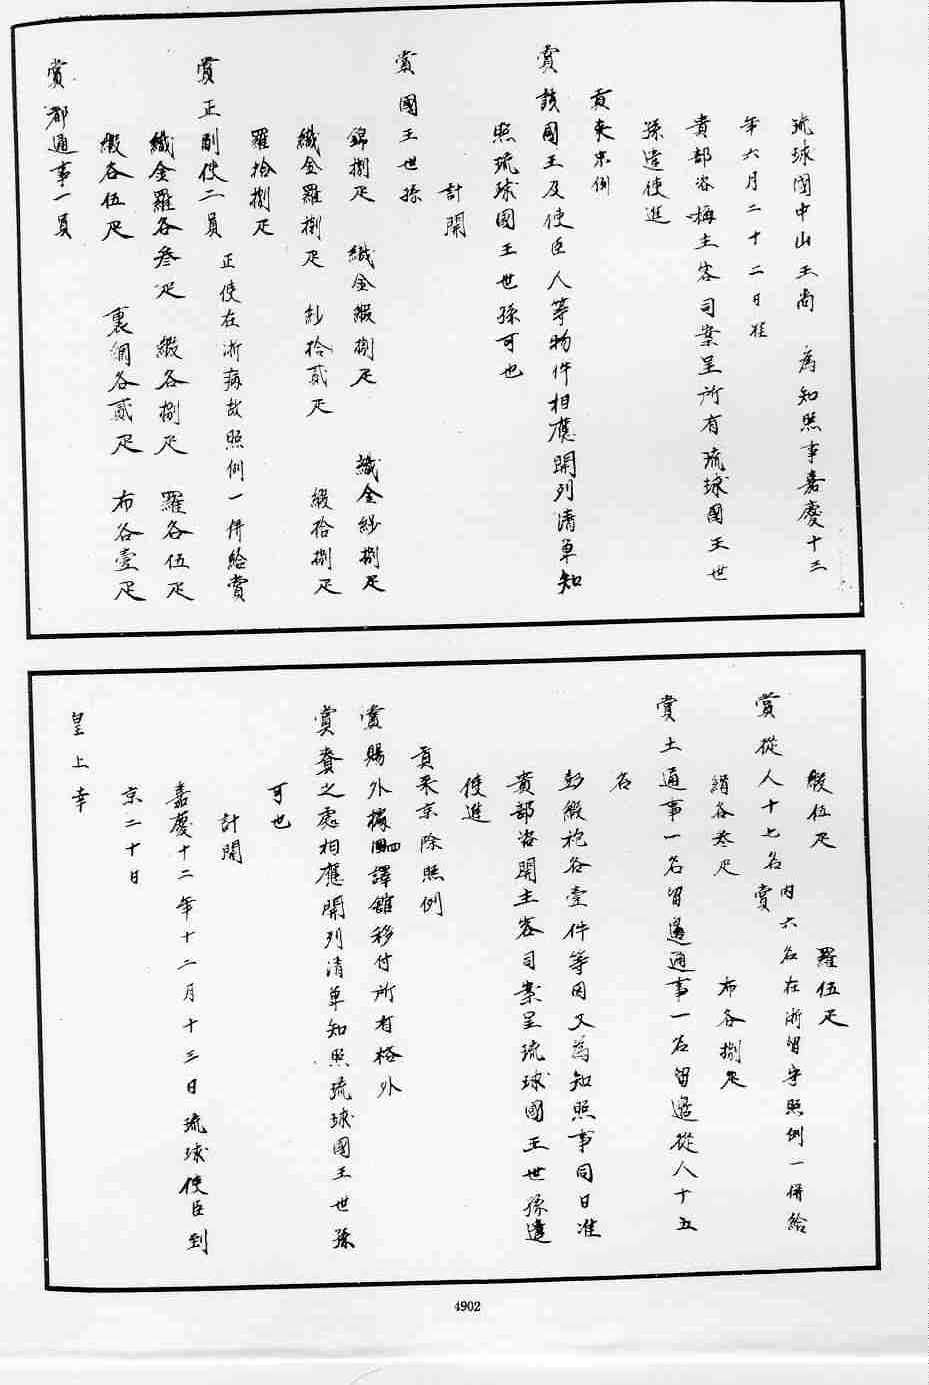 琉球國中山王尚　為知照事嘉慶十三
年六月二十二日准
貴部咨稱主客司案呈所有琉球國王世
孫遣使進
貢來京例
賞該國王及使臣人等物件相應開列清單知
照琉球國王世孫可也
計開
賞國王世孫
錦捌疋　織金緞捌疋　織金紗捌疋
織金羅捌疋　紗拾貳疋　緞拾捌疋
羅拾捌疋
賞正副使二員　正使在浙病故照例一併給賞
織金羅各叁疋　緞各捌疋　羅各伍疋
緞各伍疋　裏綢各貳疋　布各壹疋
賞都通事一員
緞伍疋　羅伍疋
賞從人十七名　內六名在浙留守照例一併給
賞
絹各叁疋　布各捌疋
賞土通事一名留邊通事一名留邊從人十五
名
彭緞袍各壹件等因又為知照事同日准
貴部咨開主客司案呈琉球國王世孫遣
使進
貢來京除照例
賞賜外據四譯館移付所有格外
賞賚之處相應開列清單知照琉球國王世孫
可也
計開
嘉慶十二年十二月十三日琉球使臣到
京二十日
皇上幸
4902